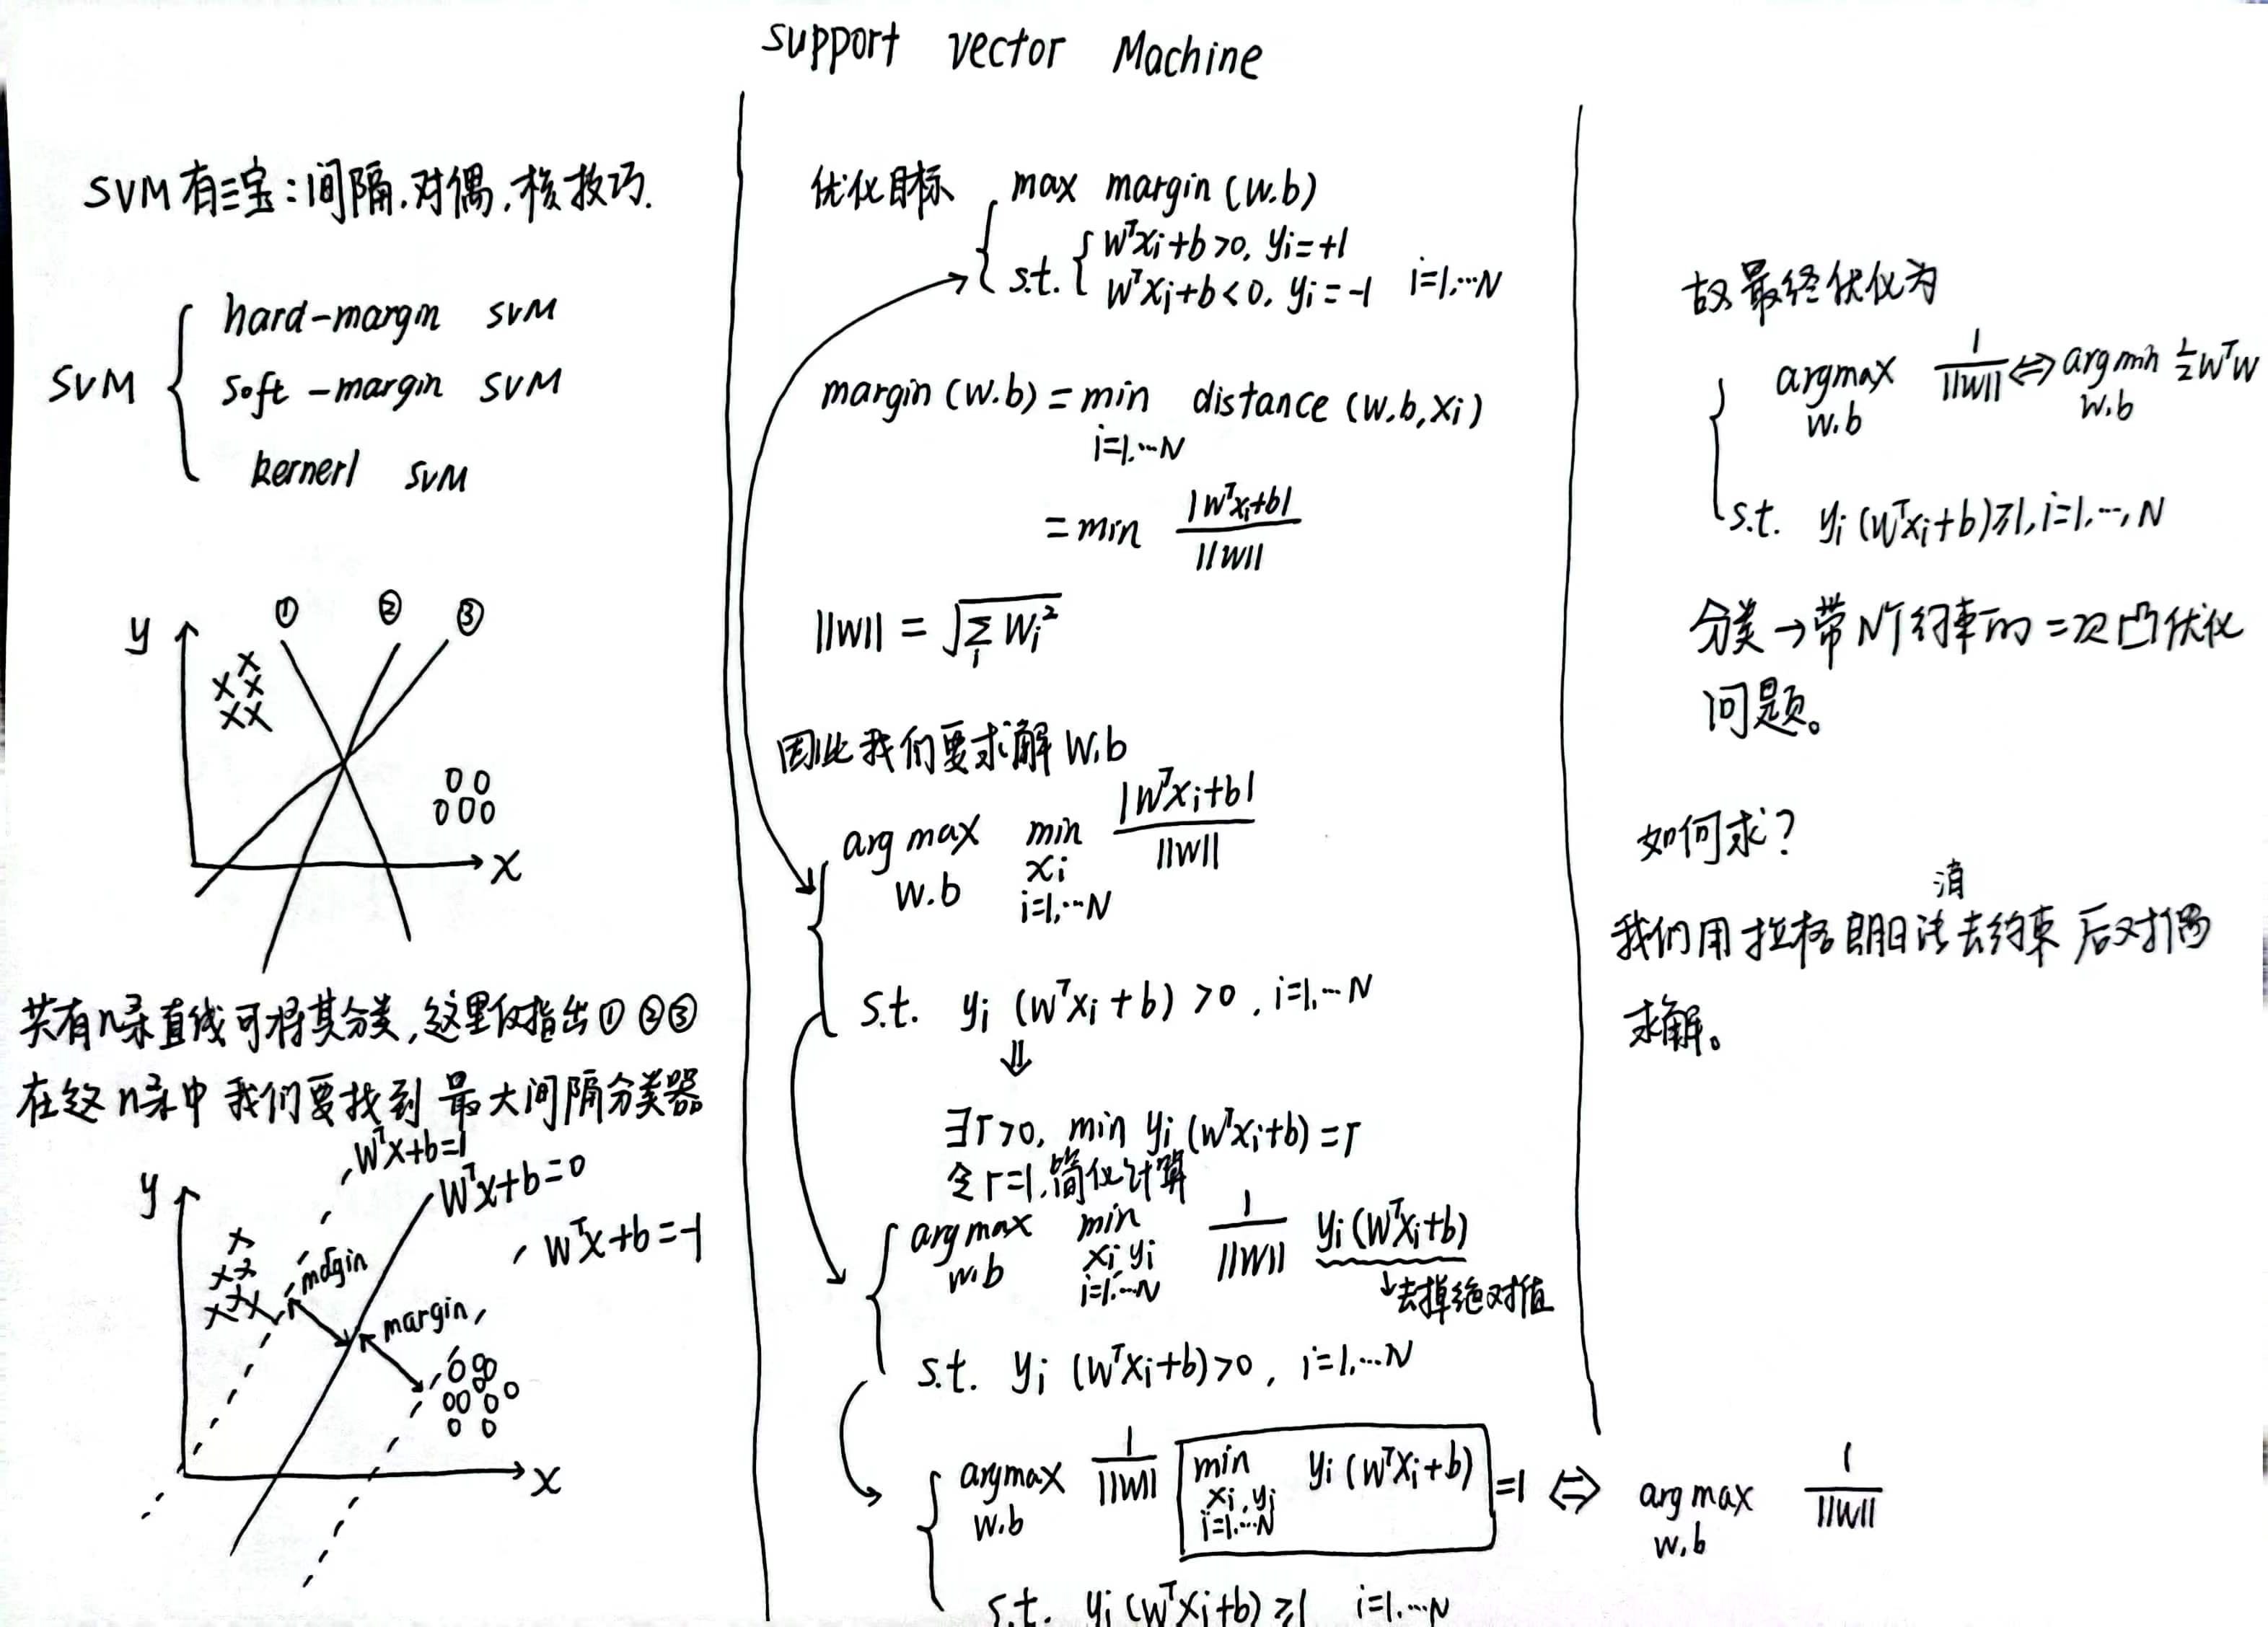 support vector Machine
SVM有三宝:间隔.对偶.核技巧.
SVM
hard-margin SVM
soft-margin SVM
kernerl SVM
① ② ③
y
x x x x x
o o o o o
x
共有n条直线可将其分类,这里仅指出①②③
在这n条中我们要找到最大间隔分类器
wᵀx+b=1
wᵀx+b=0
wᵀx+b=-1
y
margin
margin
x
优化目标 max margin(w.b)
s.t. { wᵀxᵢ+b>0, yᵢ=+1
wᵀxᵢ+b<0, yᵢ=-1 i=1,…N
margin(w.b) = min distance(w.b,xᵢ)
i=1,…N
= min |wᵀxᵢ+b| / ||w||
||w|| = √∑ᵢ wᵢ²
因此我们要求解w.b
arg max min |wᵀxᵢ+b| / ||w||
w.b xᵢ
i=1,…N
s.t. yᵢ(wᵀxᵢ+b)>0, i=1,…N
⇓
∃r>0, min yᵢ(wᵀxᵢ+b)=r
令r=1,简化计算
argmax min 1/||w|| yᵢ(wᵀxᵢ+b)
w.b xᵢ,yᵢ
i=1,…N
↓去掉绝对值
s.t. yᵢ(wᵀxᵢ+b)>0, i=1,…N
argmax 1/||w|| min yᵢ(wᵀxᵢ+b) =1 ⇔ arg max 1/||w||
w.b xᵢ,yᵢ w,b
i=1,…N
s.t. yᵢ(wᵀxᵢ+b)≥1 i=1,…N
故最终优化为
argmax 1/||w|| ⇔ arg min ½wᵀw
w.b w.b
s.t. yᵢ(wᵀxᵢ+b)≥1,i=1,…,N
分类→带N个约束的二次凸优化
问题。
如何求?
我们用拉格朗日法消去约束后对偶
求解。